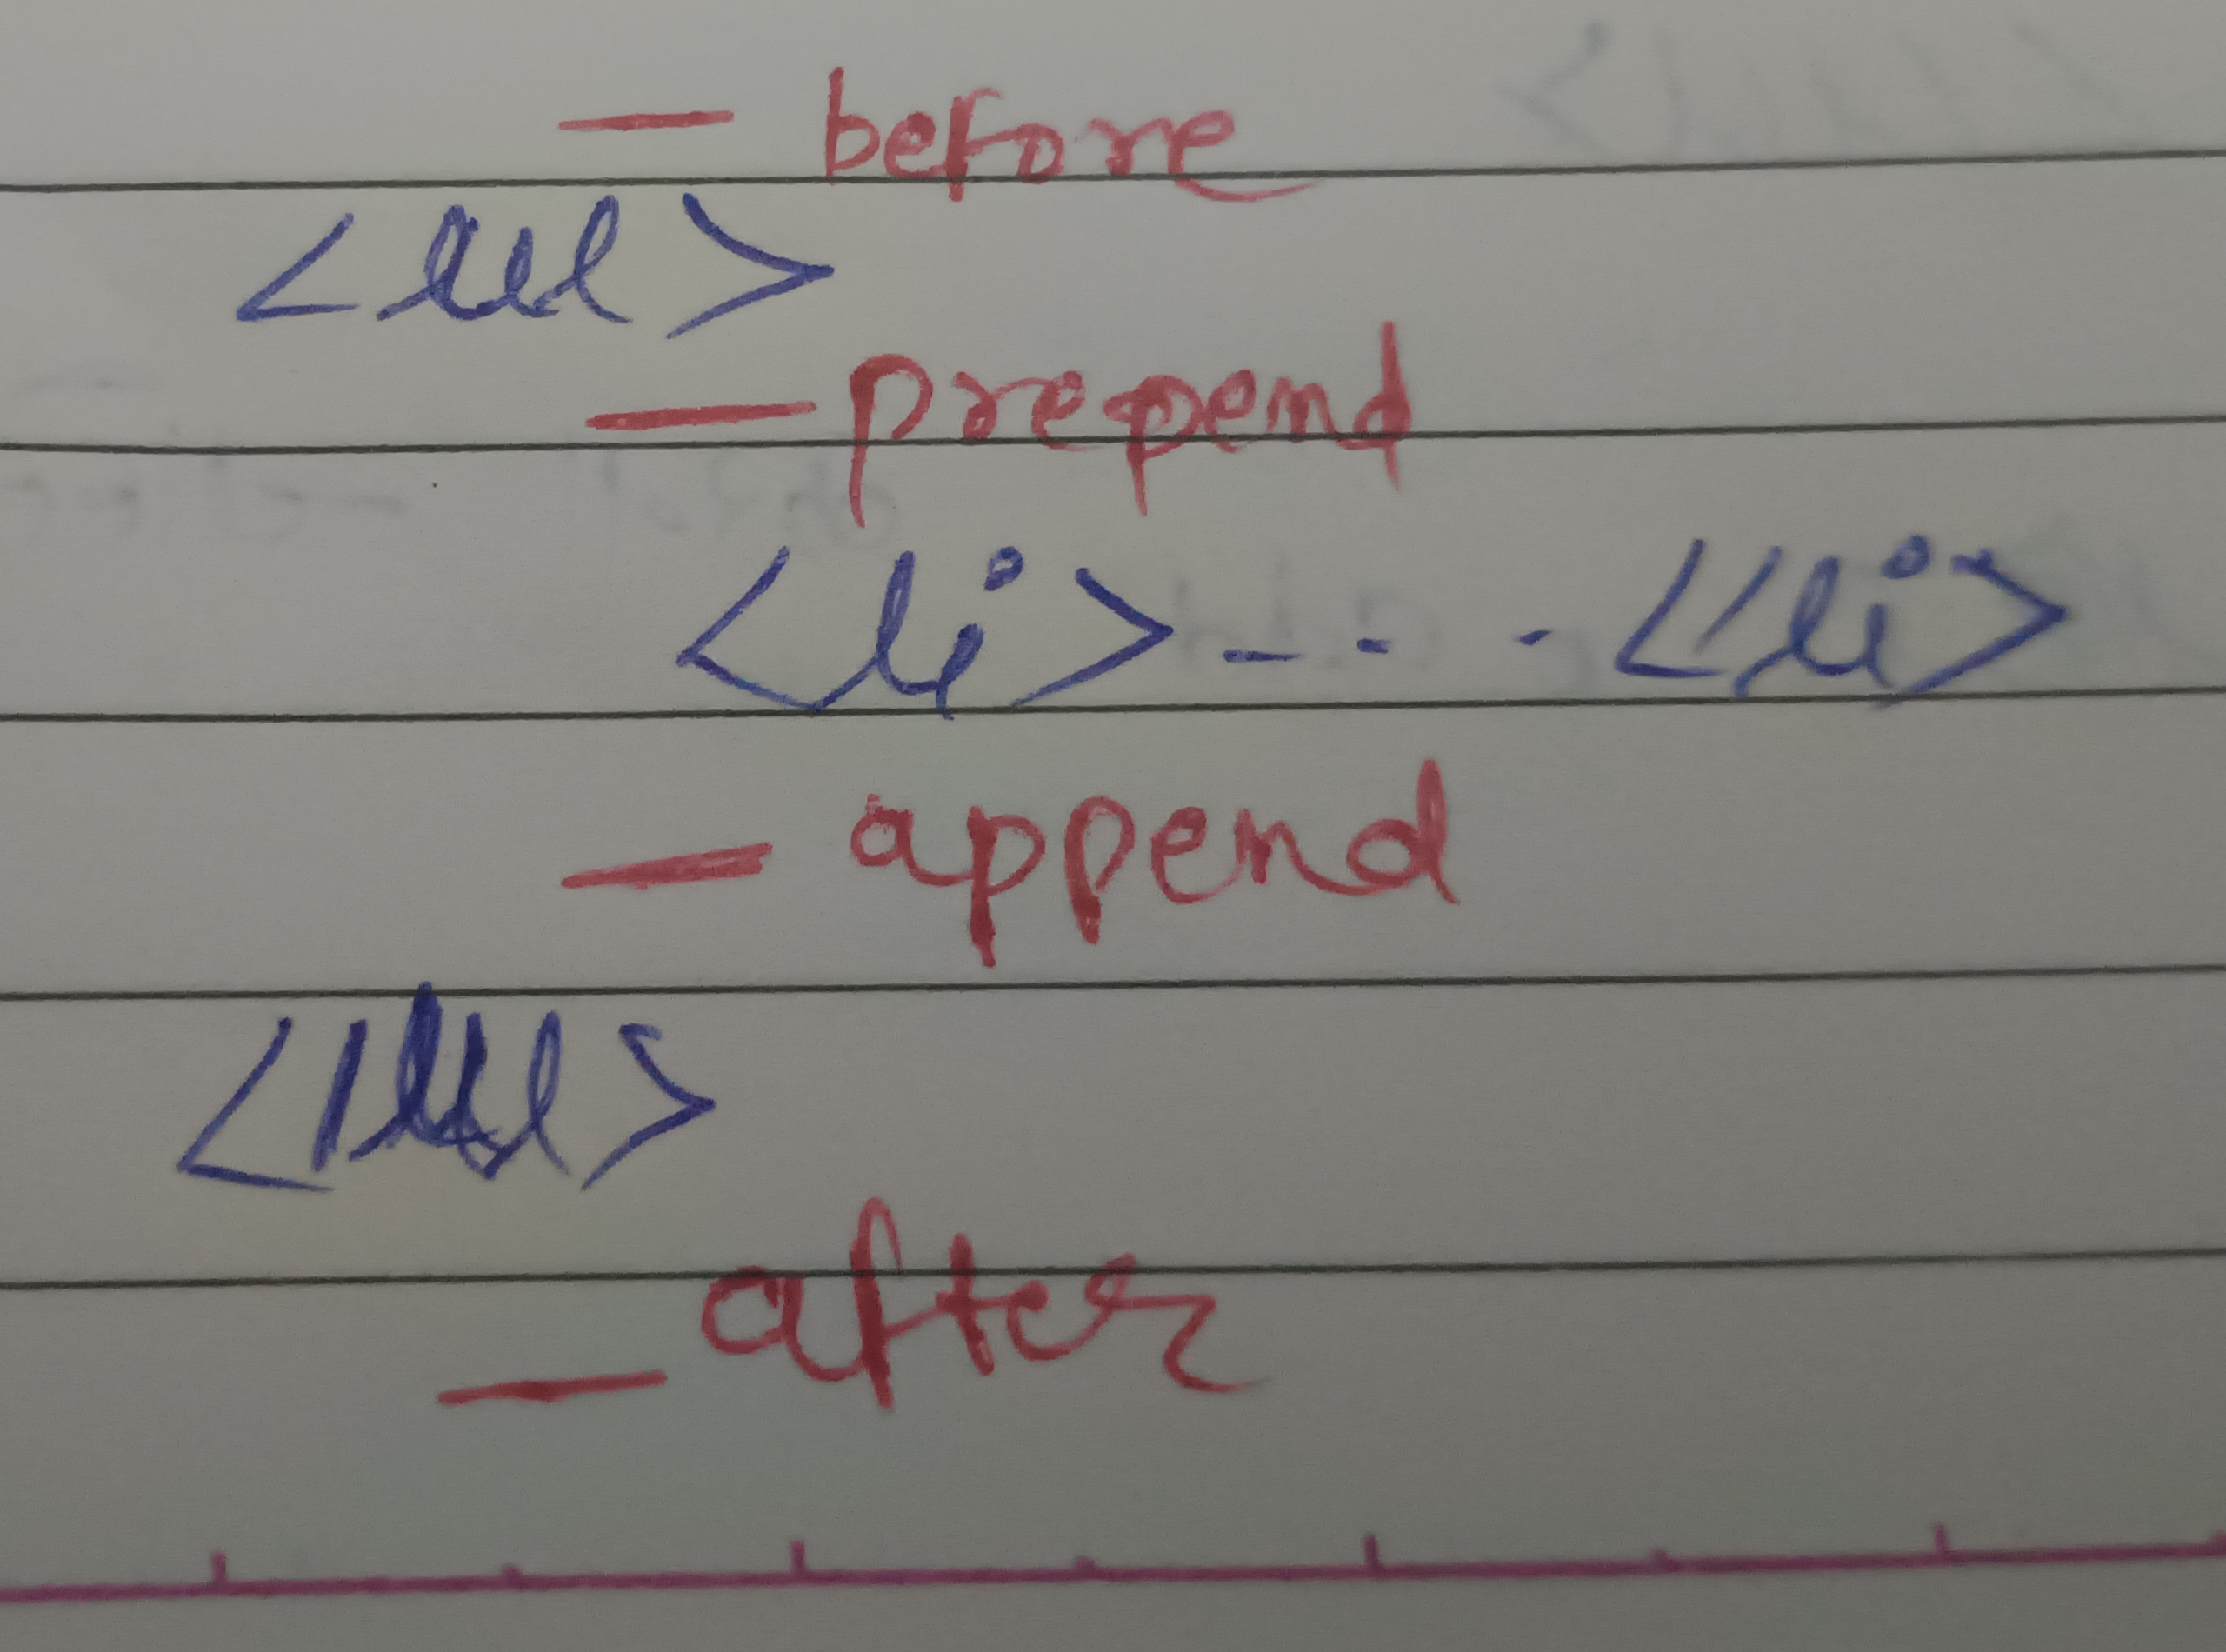 — before
<ul>
— prepend
<li> - - - </li>
— append
</ul>
— after